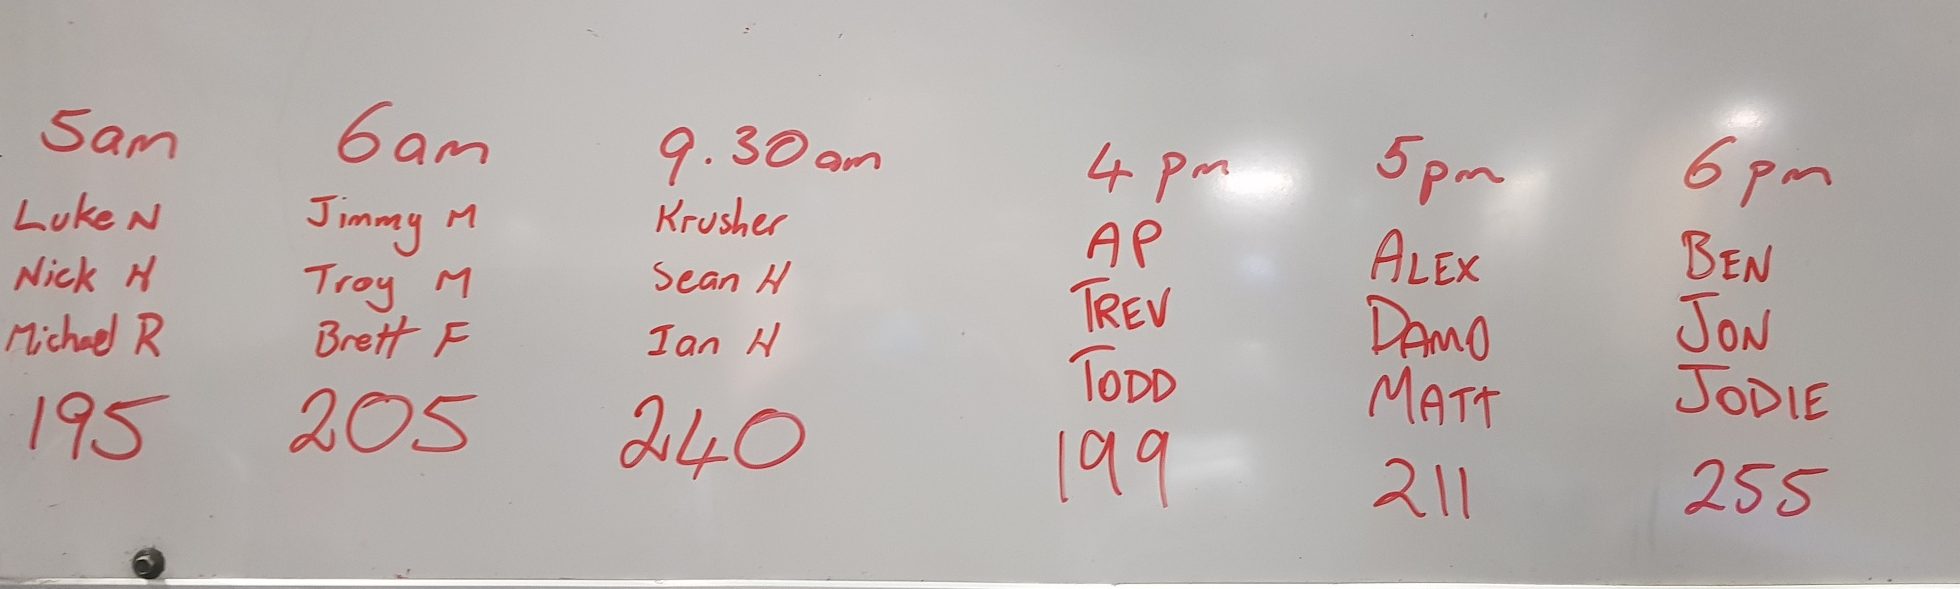 5am 6am 9.30am 4pm 5pm 6pm
Luke N Jimmy M Krusher AP ALEX BEN
Nick H Troy M Sean H TREV DAMO JON
Michael R Brett F Ian H TODD MATT JODIE
195 205 240 199 211 255